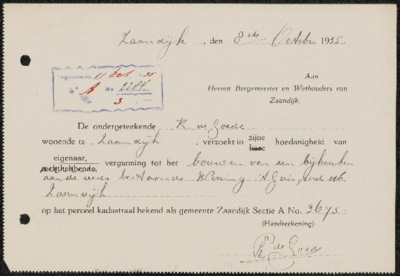 Zaandijk, den 8ste October 1935
Aan
Heeren Burgemeester en Wethouders van
Zaandijk.
11 Oct. 35
A
3
De ondergeteekende K. de Goede
wonende te Zaandijk, verzoekt in zijne hoedanigheid van
haar
eigenaar, vergunning tot het bouwen van een bijkeuken
rechthebbende,
aan de reeds bestaande Woning
Zaandijk
op het perceel kadastraal bekend als gemeente Zaandijk Sectie A No. 2675.
(Handteekening)
K de Goede